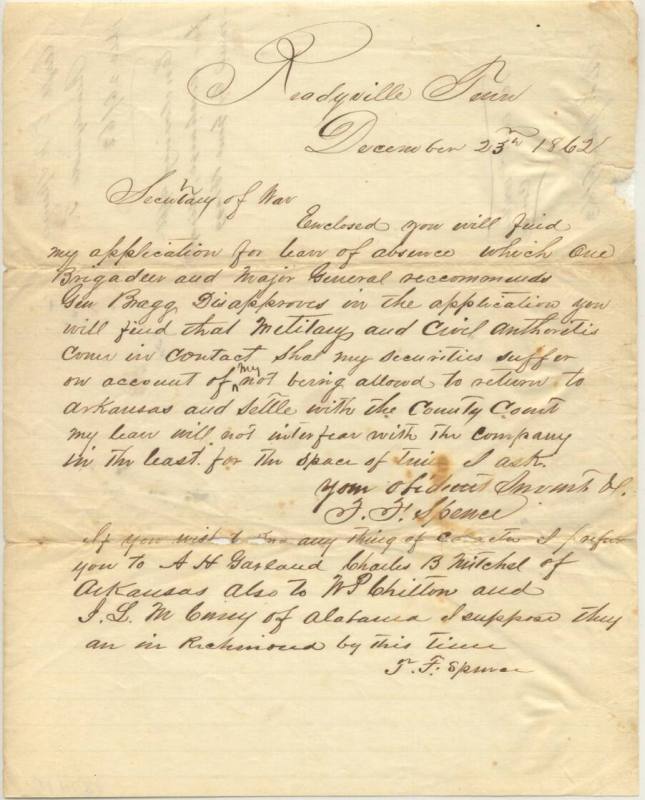 Readyville Tenn
December 23rd 1862
Secretary of War
Enclosed you will find
my application for leav of absence which one
Brigadeer and Major General reccommends
Gen Bragg Disapproves in the application you
will find that Metilary and Civil Authoritis
come in contact Shal my Securities suffer
on account of my not being allowd to return to
Arkansas and Settle with the County Court
my leav will not interfear with the company
in the least. for the space of time I ask.
your obidient Servent &c.
T. F. Spence
If you wish to any thing of I refer
you to A H Garland Charles B Mitchel of
Arkansas also to W P Chilton and
J. L. M Curry of Alabama I suppose they
are in Richmond by this time
T. F. Spence